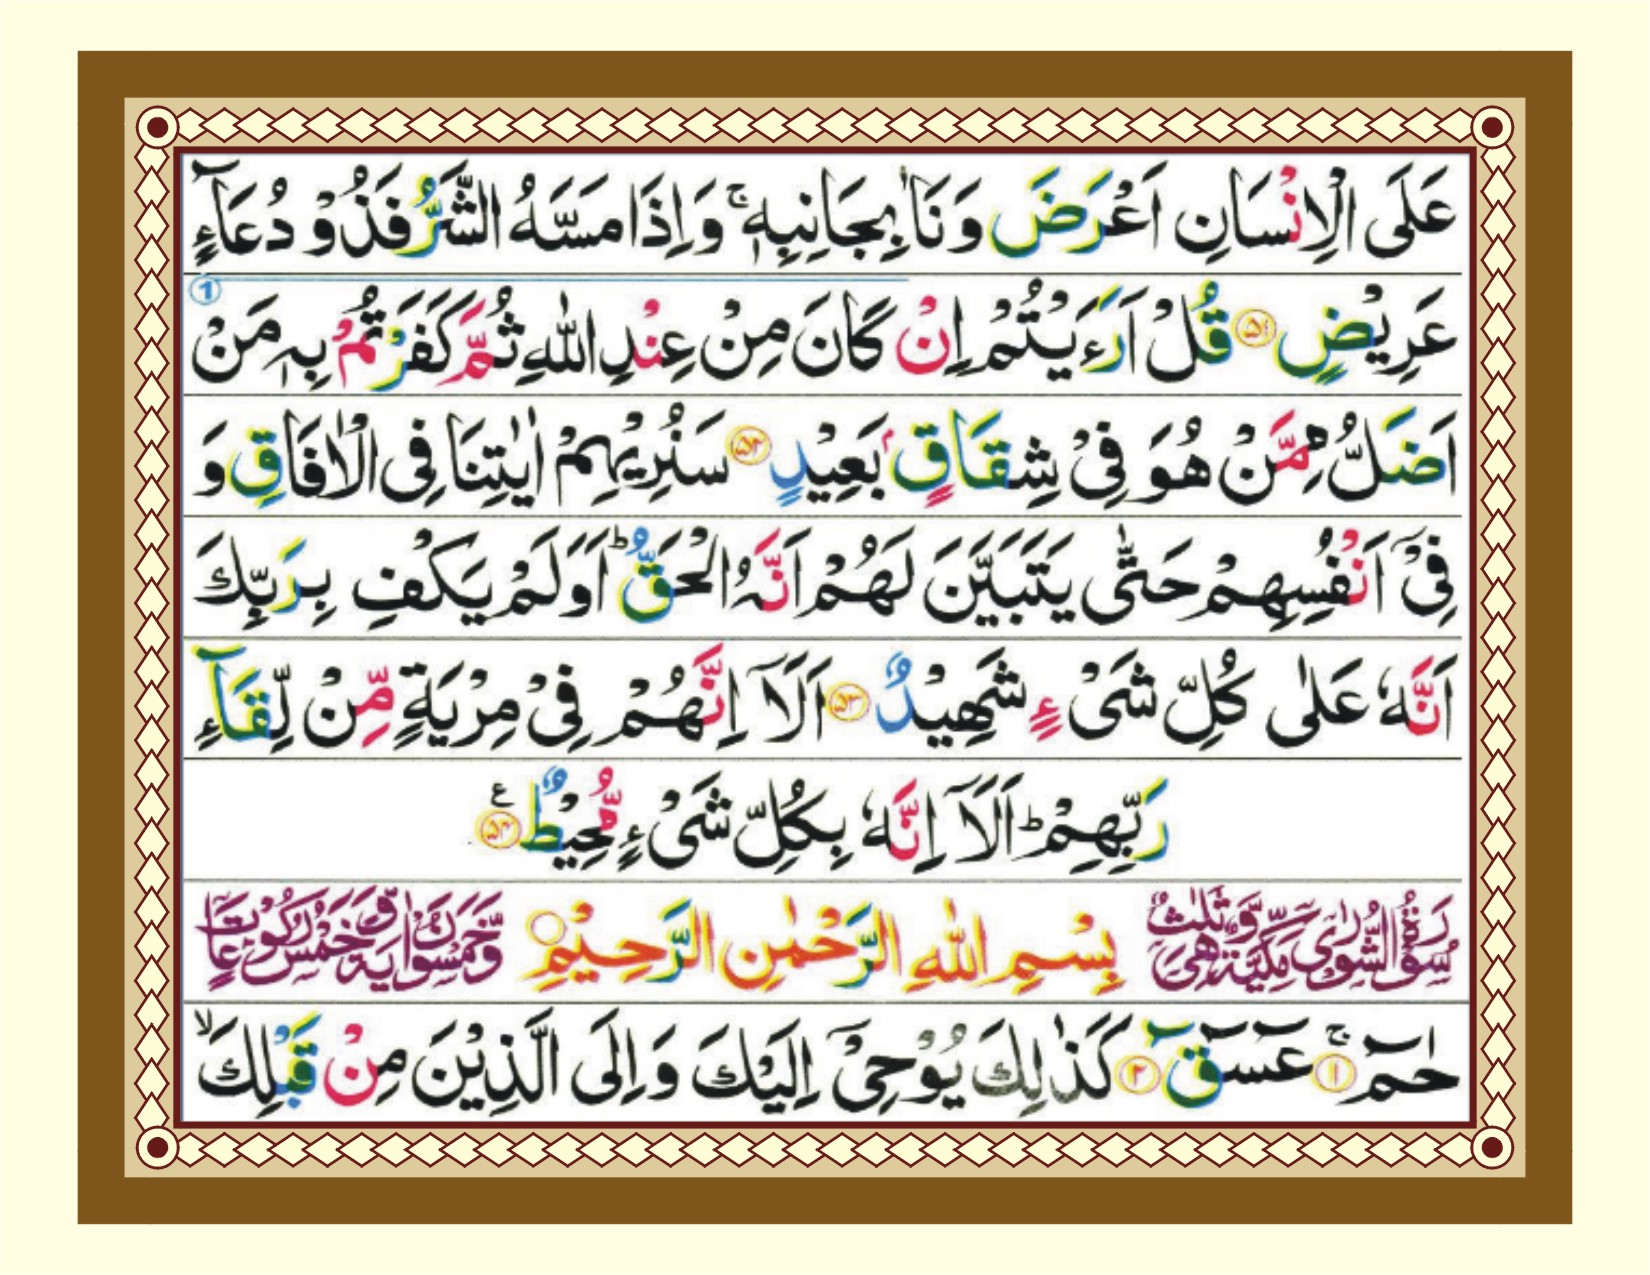 عَلَى الْاِنْسَانِ اَعْرَضَ وَنَاٰ بِجَانِبِهٖ ۚ وَاِذَا مَسَّهُ الشَّرُّ فَذُوْ دُعَآءٍ
عَرِيْضٍ ۵۱ قُلْ اَرَءَيْتُمْ اِنْ كَانَ مِنْ عِنْدِ اللّٰهِ ثُمَّ كَفَرْتُمْ بِهٖ مَنْ 1
اَضَلُّ مِمَّنْ هُوَ فِيْ شِقَاقٍۭ بَعِيْدٍ ۵۲ سَنُرِيْهِمْ اٰيٰتِنَا فِى الْاٰفَاقِ وَ
فِيْٓ اَنْفُسِهِمْ حَتّٰى يَتَبَيَّنَ لَهُمْ اَنَّهُ الْحَقُّ ؕ اَوَلَمْ يَكْفِ بِرَبِّكَ
اَنَّهٗ عَلٰى كُلِّ شَىْءٍ شَهِيْدٌ ۵۳ اَلَآ اِنَّهُمْ فِيْ مِرْيَةٍ مِّنْ لِّقَآءِ
رَبِّهِمْ ؕ اَلَآ اِنَّهٗ بِكُلِّ شَىْءٍ مُّحِيْطٌ ۵۴ ع
سُوْرَةُ الشُّوْرٰى مَكِّيَّةٌ وَّهِىَ ثَلٰثٌ بِسْمِ اللّٰهِ الرَّحْمٰنِ الرَّحِيْمِ وَّخَمْسُوْنَ اٰيَةً وَّخَمْسُ رُكُوْعَاتٍ
حٰمٓ ۚ ۱ عٓسٓقٓ ۲ كَذٰلِكَ يُوْحِيْٓ اِلَيْكَ وَاِلَى الَّذِيْنَ مِنْ قَبْلِكَ ۙ